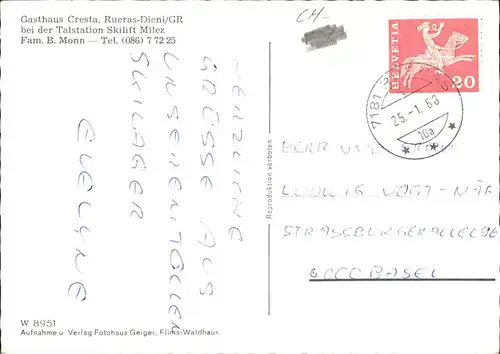 Gasthaus Cresta, Rueras-Dieni/GR
bei der Talstation Skilift Milez
Fam. B. Monn — Tel. (086) 7 72 25
CH-
HELVETIA
20
7181
25.-1.68
10a
HERZLICHE
GRÜSSE AUS
UNSEREM TOLLEN
SKILAGER
EVELYNE
Reproduktion verboten
HERR UND
LUDWIG VOGT-NÄF
STRASSBURGERALLEE 96
4000 BASEL
W 8951
Aufnahme u. Verlag Fotohaus Gerger, Flims-Waldhaus